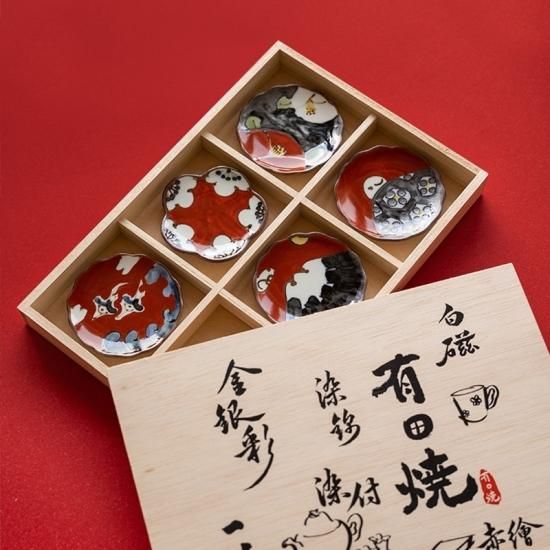 白磁
有田焼
有田焼
赤繪
染錦
染付
金銀彩